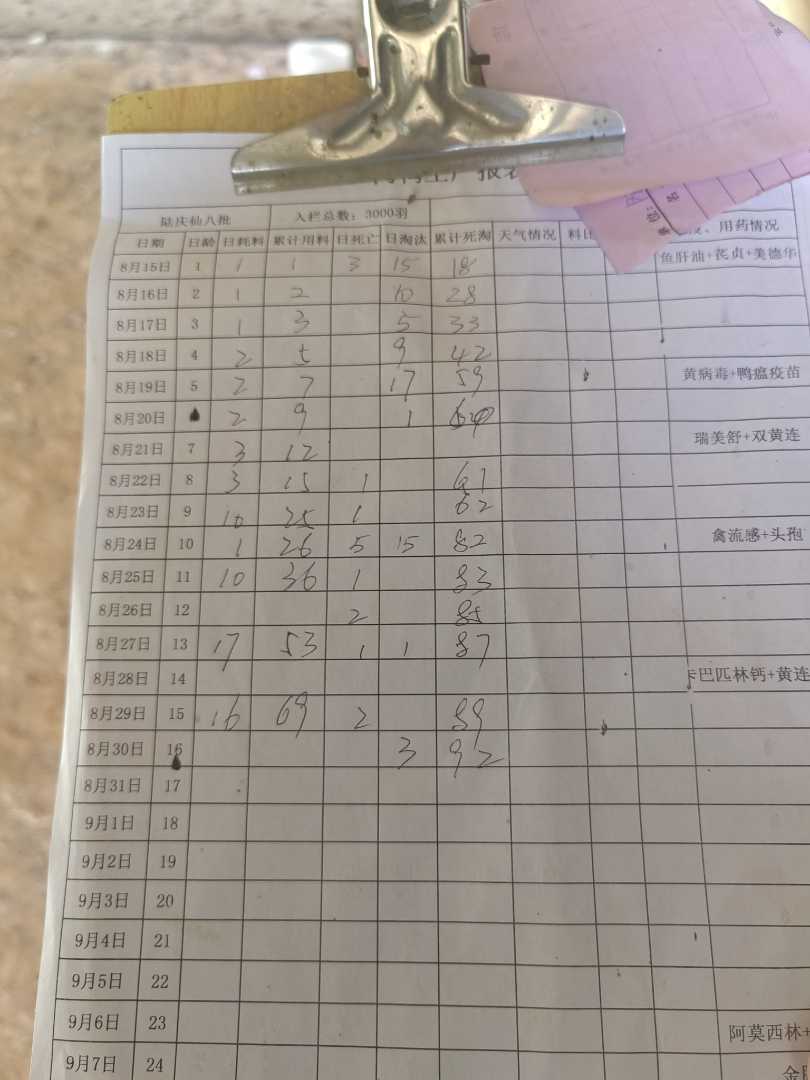 陆庆仙八批 入栏总数：3000羽
日期 日龄 日耗料 累计用料 日死亡 日淘汰 累计死淘 天气情况 料 、用药情况
8月15日 1 1 1 3 15 18 鱼肝油+芪贞+美德华
8月16日 2 1 2 10 28
8月17日 3 1 3 5 33
8月18日 4 2 5 9 42
8月19日 5 2 7 17 59 黄病毒+鸭瘟疫苗
8月20日 2 9 1
8月21日 7 3 12 瑞美舒+双黄连
8月22日 8 3 15 1 61
8月23日 9 10 25 1 62
8月24日 10 1 26 5 15 82 禽流感+头孢
8月25日 11 10 36 1 83
8月26日 12 2 85
8月27日 13 17 53 1 1 87
8月28日 14 卡巴匹林钙+黄连
8月29日 15 16 69 2 89
8月30日 16 3 92
8月31日 17
9月1日 18
9月2日 19
9月3日 20
9月4日 21
9月5日 22
9月6日 23 阿莫西林+
9月7日 24